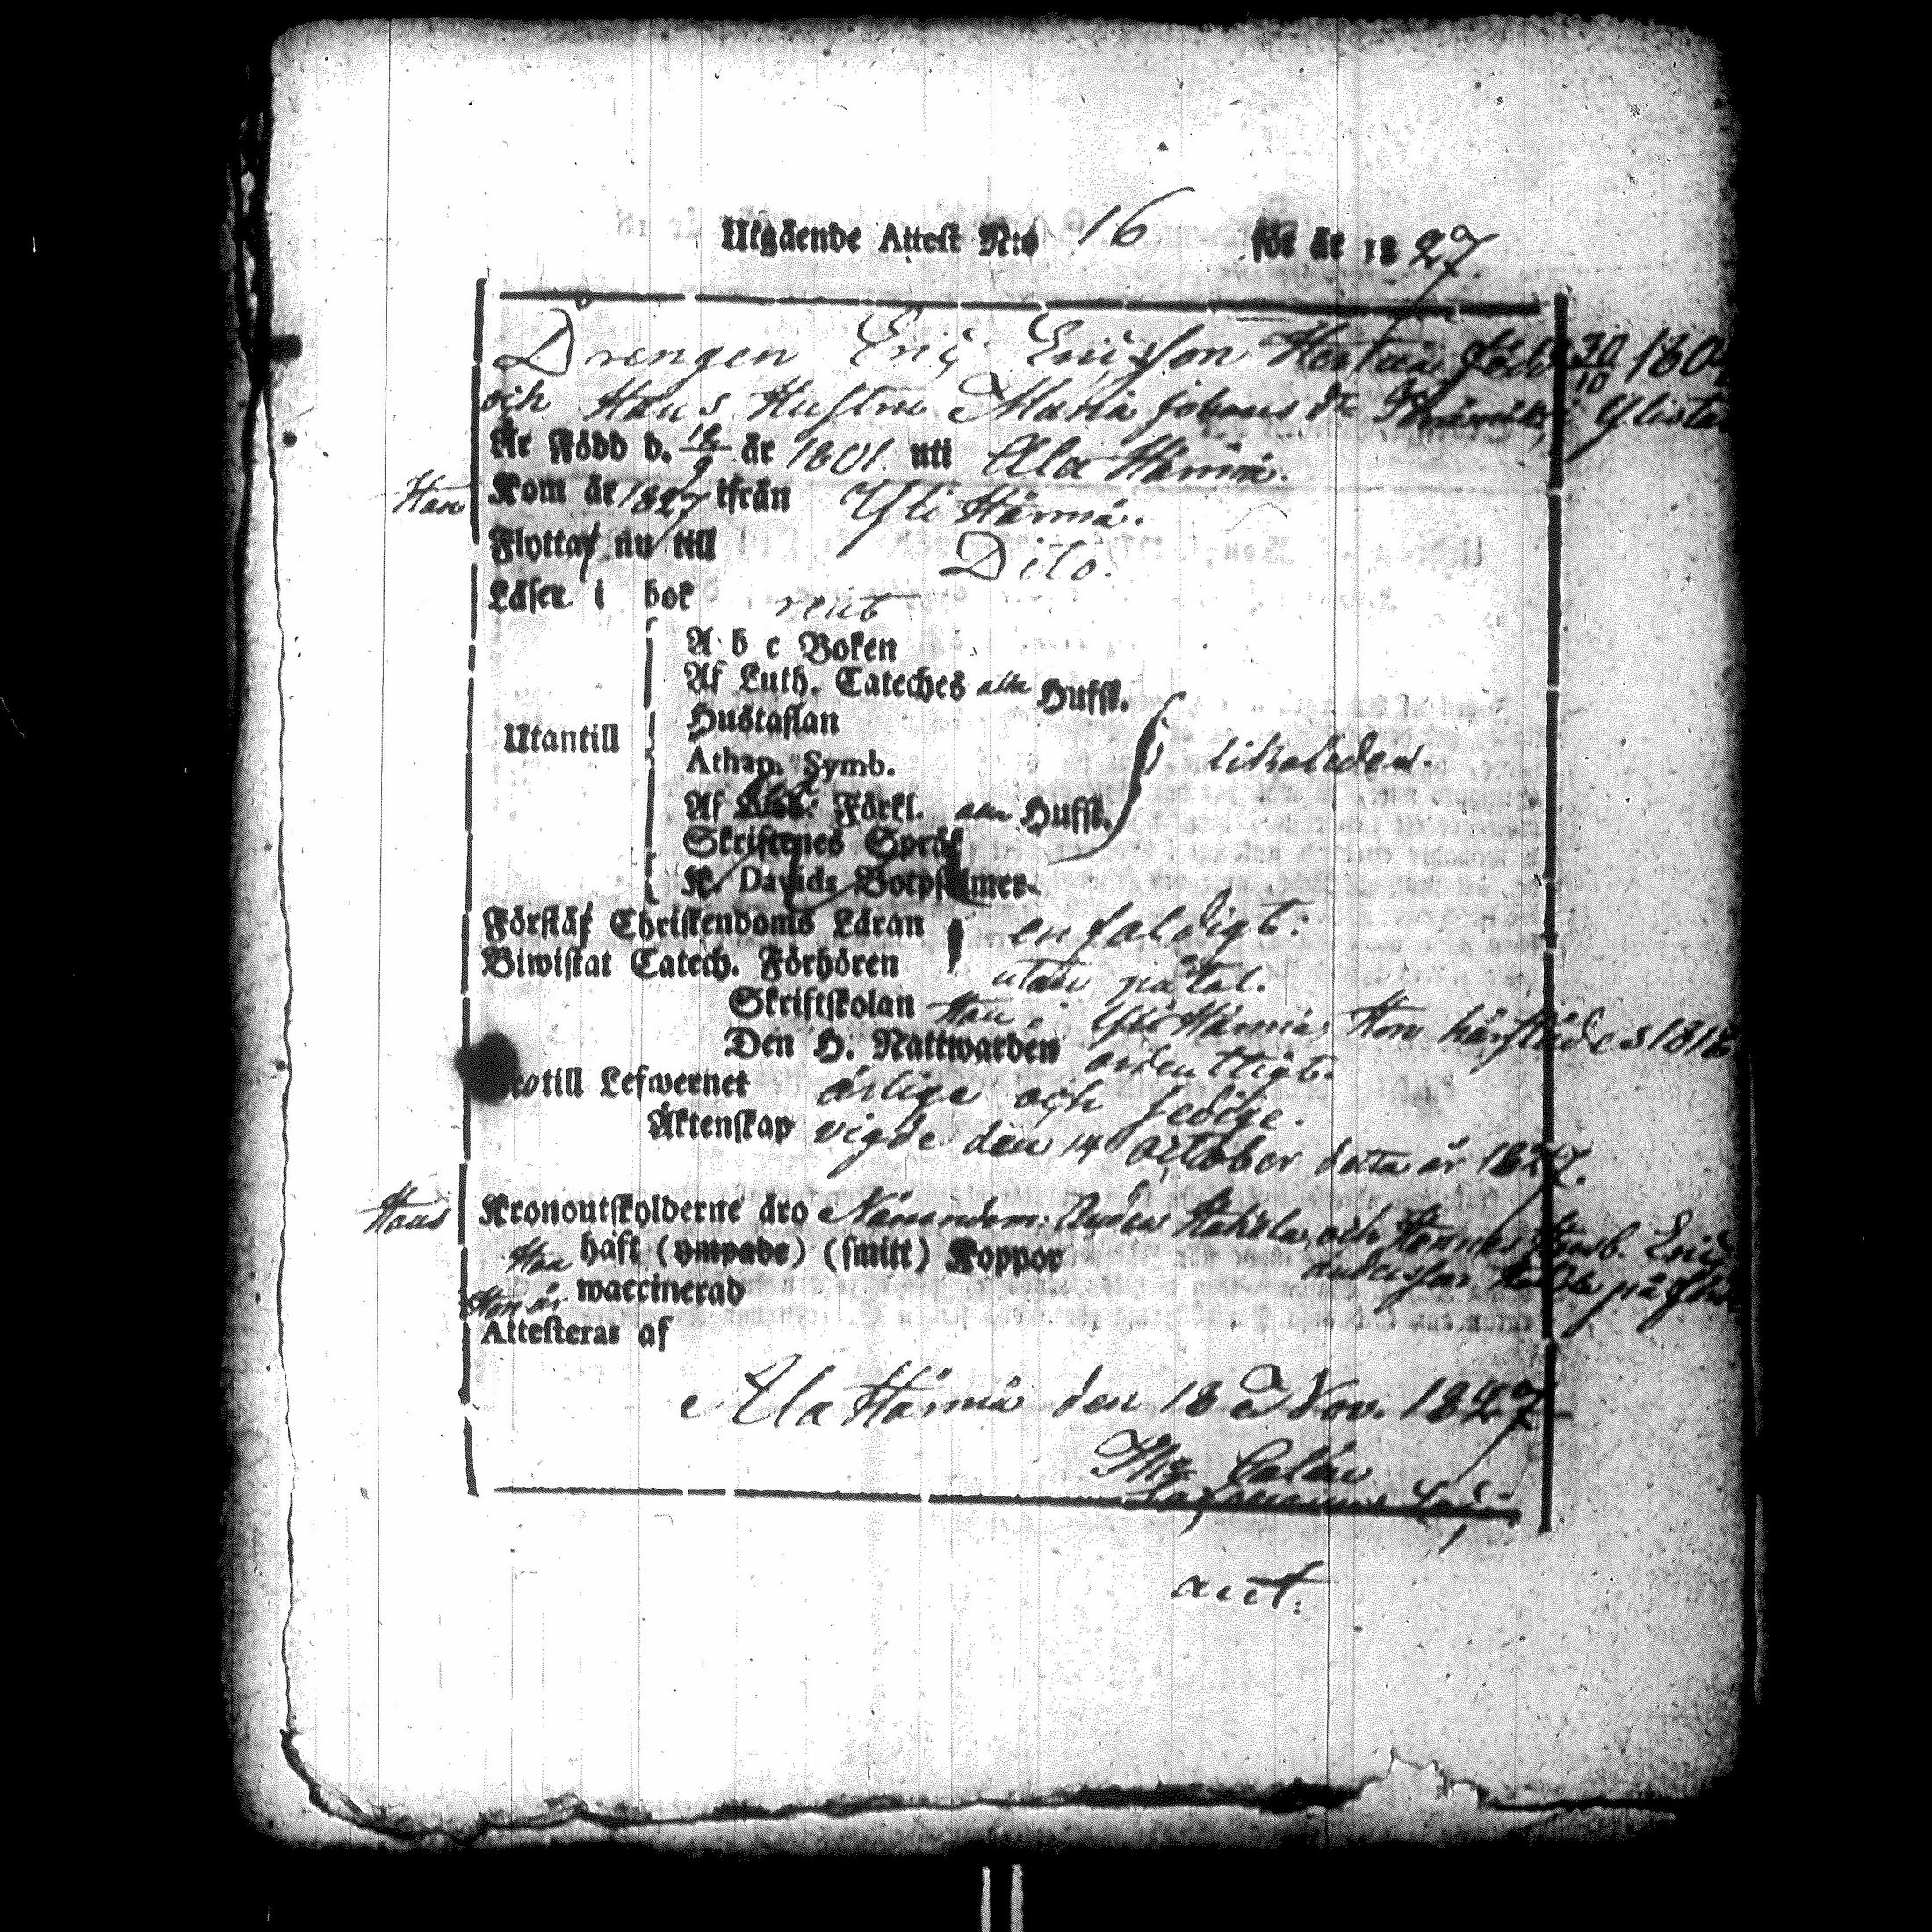 Utgående Attest N:o 16 för år 1827
Drengen Eric Ericsson född 30/10 180
och Hans Hustru Maria Johans dr
Är Född d. 12/9 år 1801. uti Ala Härmä.
Han Kom år 1827 ifrån Yli Härmä.
Flyttar nu till Dito.
Läser i bok rent
A b c Boken
Af Luth. Cateches alla Hufst.
Hustaflan
Utantill
Athan. Symb. likaleden.
Af Förkl. alla Hufst.
Skriftenes Språk
K. Davids Botpsalmer
Förstår Christendoms Läran enfaldigt.
Biwistat Catech. Förhören utan påtal.
Skriftskolan Han i Ylihärmä, Hon härstädes 1816
Den H. Nattwarden ordentligt.
till Lefwernet ärlige och sedige.
Äktenskap vigde den 14 October detta år 1827.
Hans Kronoutskylderne äro Nämndem. och Hennes Husb. Eric
Andersson på
Han haft (ympade) (smitt) Koppor
Hon är waccinerad
Attesteras af
Ala Härmä den 18 Nov. 1827